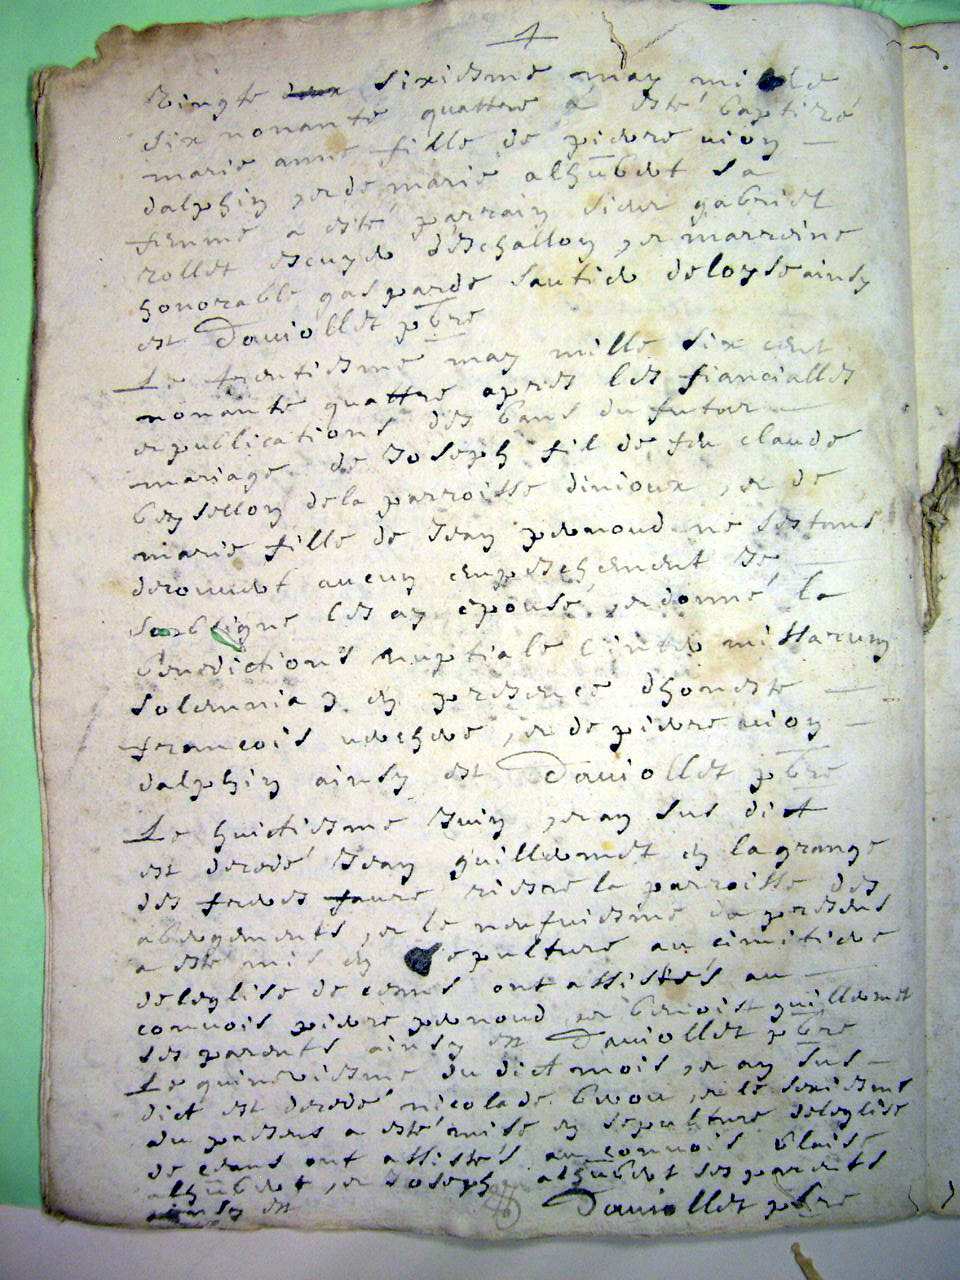 4
Vingte deux sixiesme may mille
six nonante quattre a esté baptizé
marie anne fille de pierre nion
dalphin et de marie alhubert sa
femme a esté parrain sieur gabriel
rollet escuyer deschallon et marreine
honorable gasparde sautier deloyse ainsy
est Daviollet pbre
Le trentiesme may mille six cent
nonante quattre apres les fiancialles
et publications des bans du futur
mariage de Joseph fil de feu claude
de la parroisse et de
marie fille de Jean pernoud ne sestant
decouvert aucun empeschement Je
soubsigne les ay épousé et donné la
benediction nuptiale inter missarum
solemnia en presence dhoneste
francois et de pierre nion
dalphin ainsy est Daviollet pbre
Le huictiesme Juin et an sus dict
est decedé Jean guillermet en la grange
des riere la parroisse des
abergements et le neufuiesme du present
a este mis en sepulture au cimitiere
de leglise de ceans ont assistés au
connois pierre pernoud et benoist guillermet
ses parents ainsy est Daviollet pbre
Le quinsviesme du dict mois et an sus
dict est decedé nicolade et le sexiesme
du present a esté mise en sepulture de leglise
de ceans ont assistés au connois blaise
alhubert et Joseph alhubert ses parents
ainsy est Daviollet pbre